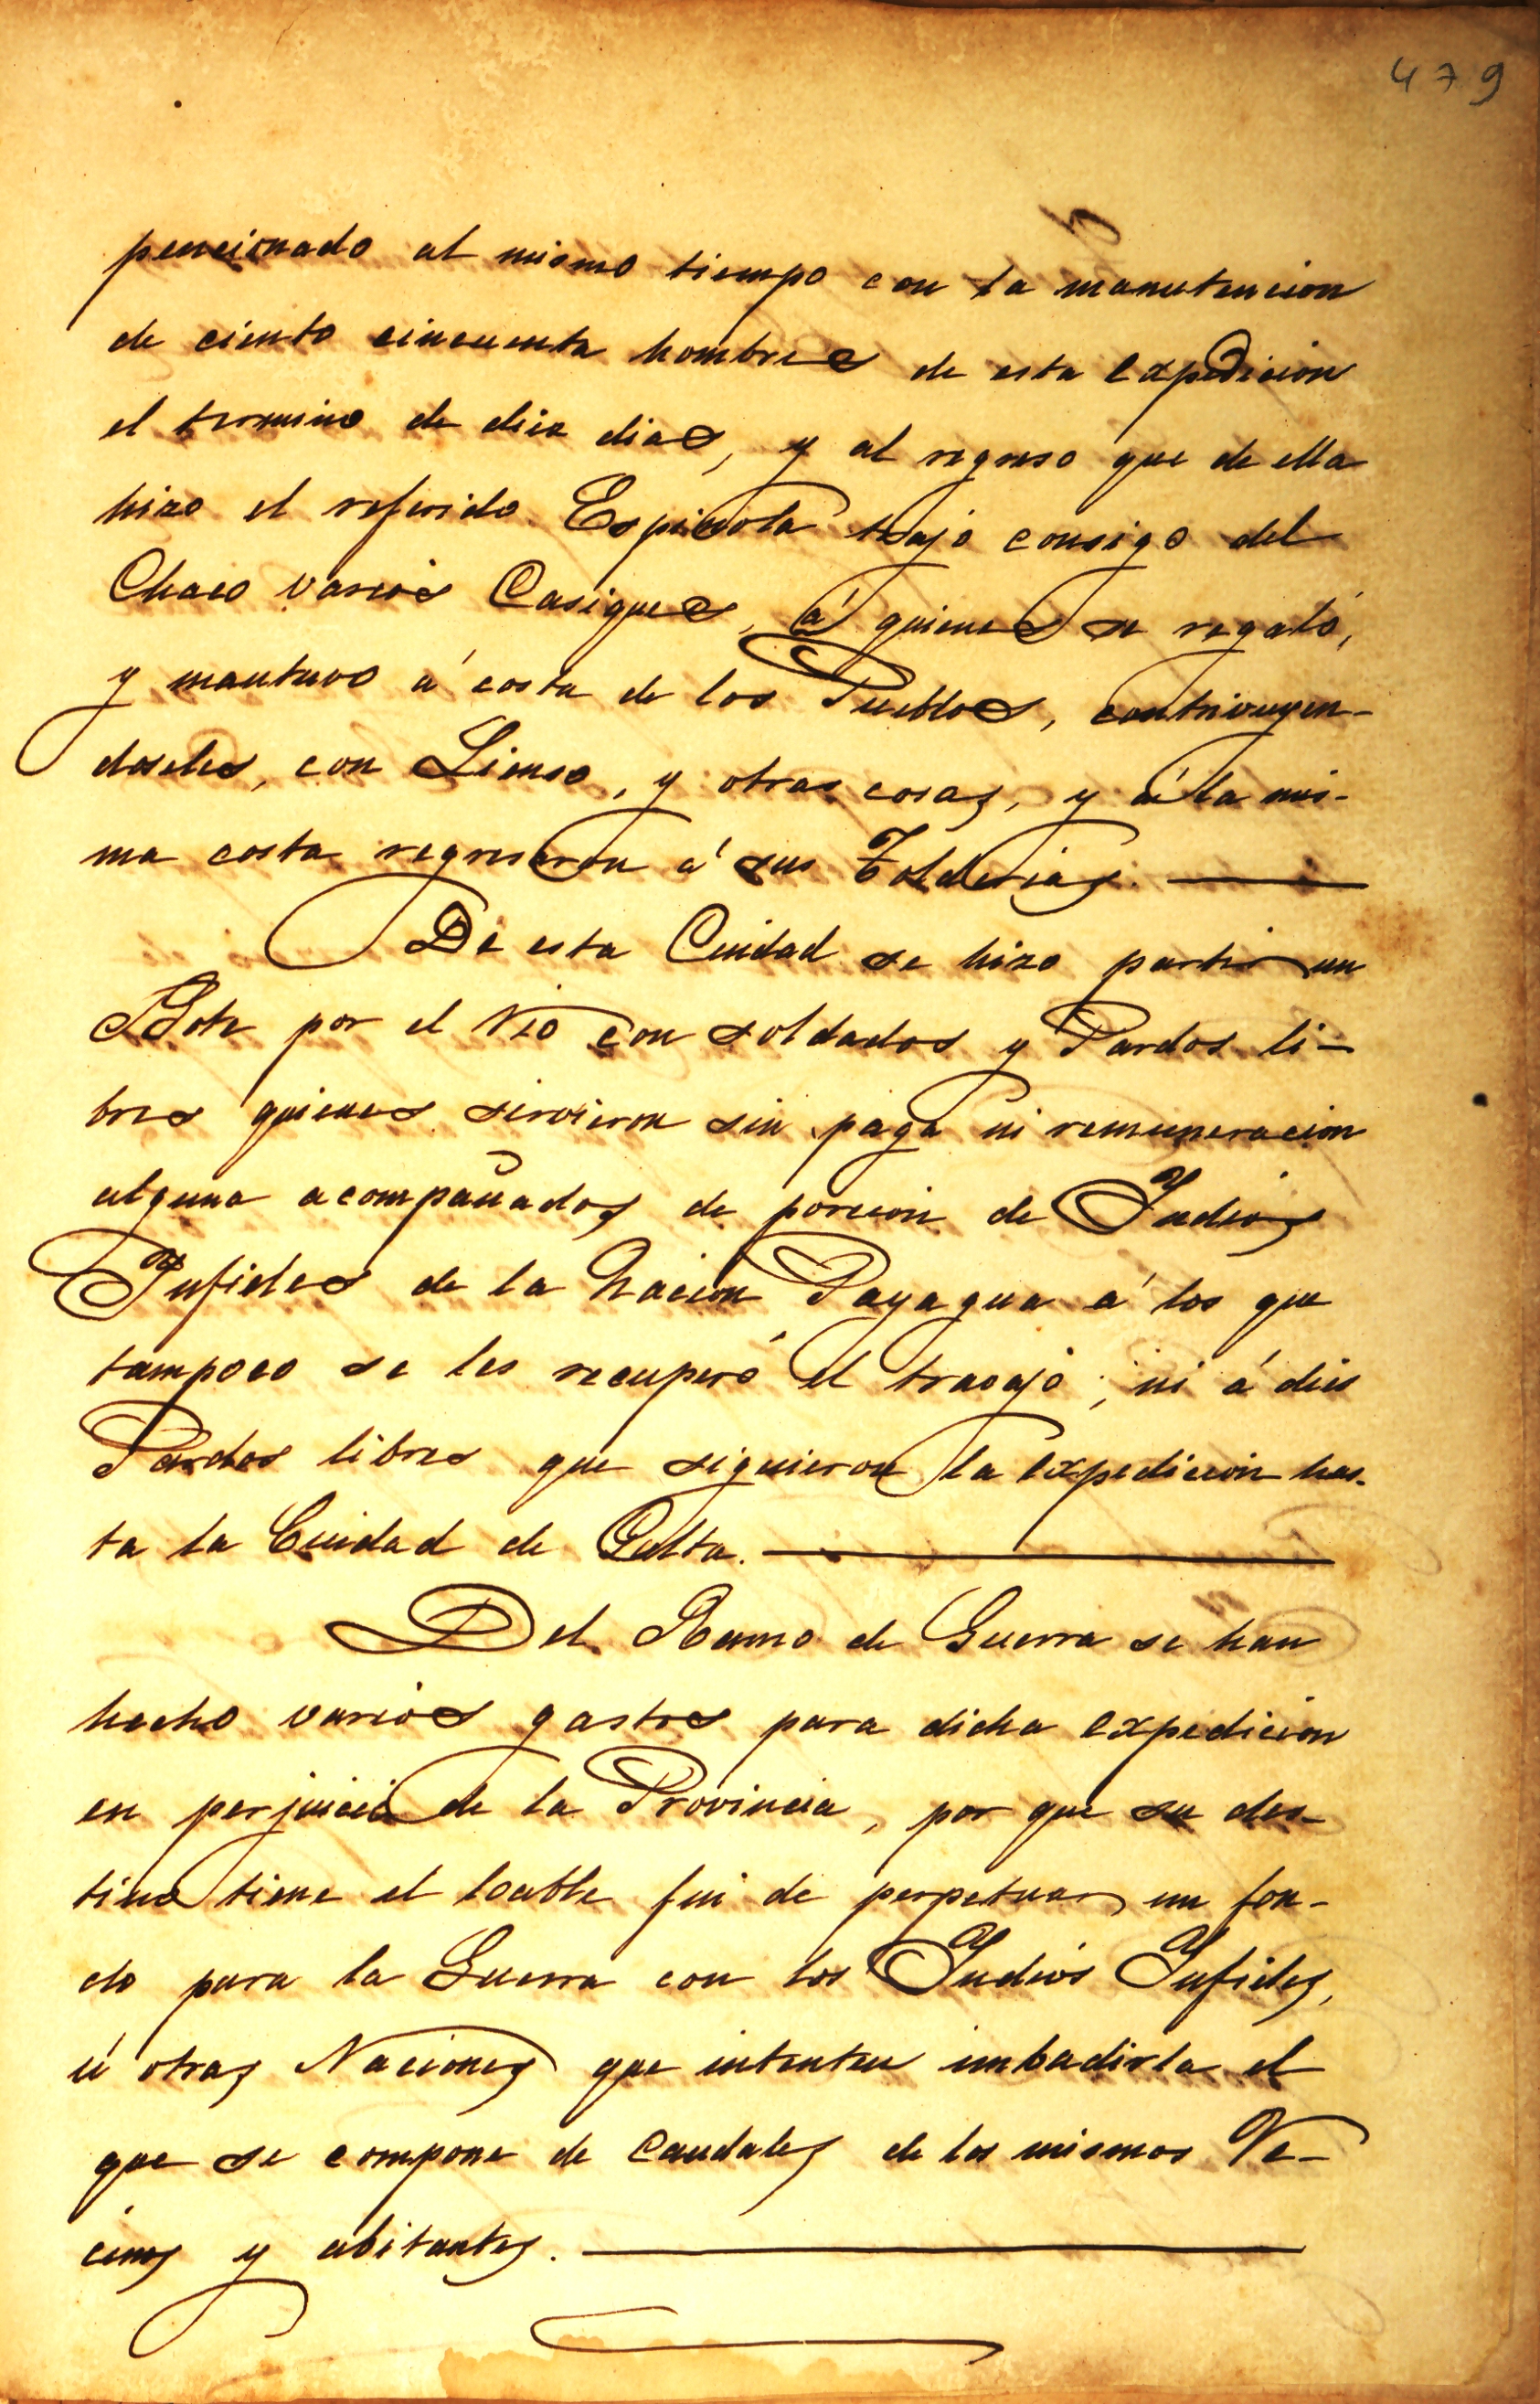 479
pencionado al mismo tiempo con la manutencion
de ciento cincuenta hombres de esta expedicion
el termino de diez dias, y al regreso que de ella
hizo el referido Espinola trajo consigo del
Chaco varios Casiques, á quienes se regaló,
y mantuvo á costa de los Pueblos, contrivuyen-
doseles, con Lienso, y otras cosas, y á la mis-
ma costa regresaron á sus Tolderias.
De esta Ciudad se hizo partir un
Bote por el rio con soldados y Pardos li-
bres quienes sirvieron sin paga ni remuneracion
alguna acompañados de porcion de Indios
Infieles de la Nacion Payagua á los que
tampoco se les recuperó el travajo, ni á dies
Pardos libres que siguieron la expedicion has-
ta la Ciudad de Salta.
Del Ramo de Guerra se han
hecho varios gastos para dicha expedicion
en perjuicio de la Provincia, por que su des-
tino tiene el loable fin de perpetuar un fon-
do para la Guerra con los Indios Infieles,
ú otras Naciones que intenten imbadirla el
que se compone de Caudales de los mismos Ve-
cinos y abitantes.